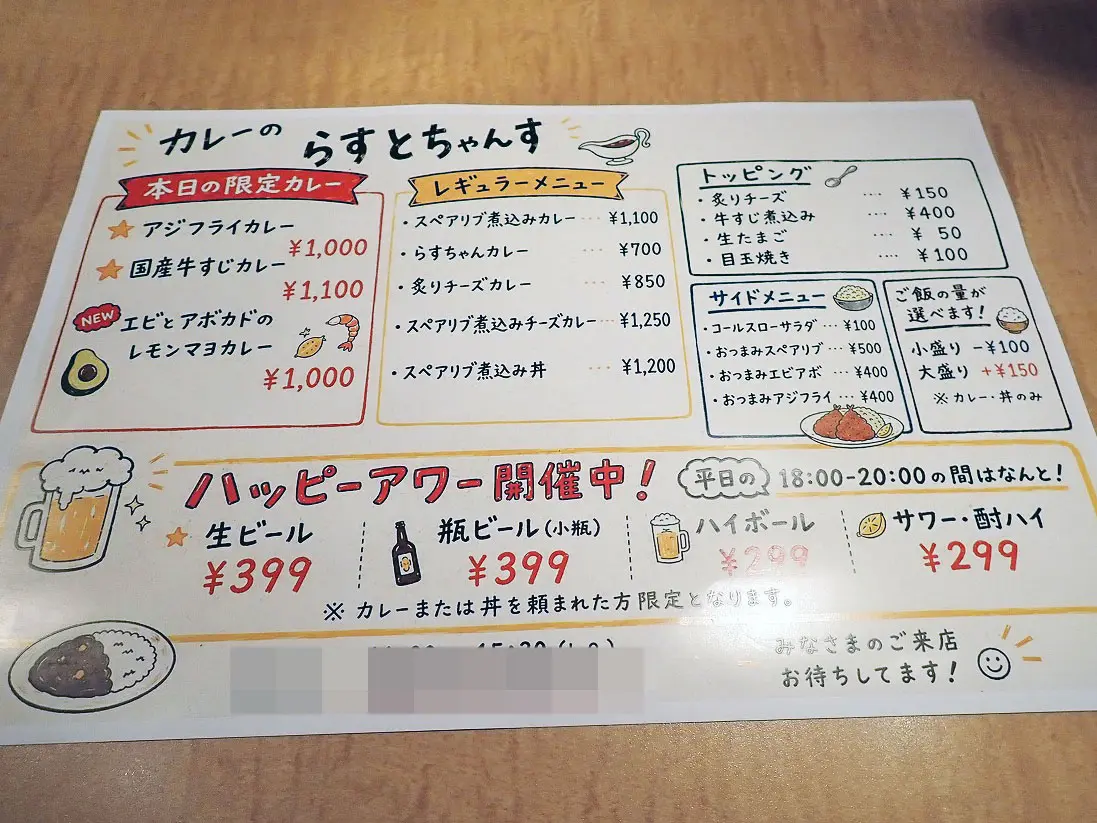 カレーの らすとちゃんす
本日の限定カレー
アジフライカレー
¥1,000
国産牛すじカレー
¥1,100
NEW
エビとアボカドの
レモンマヨカレー
¥1,000
レギュラーメニュー
・スペアリブ煮込みカレー … ¥1,100
・らすちゃんカレー … ¥700
・炙りチーズカレー … ¥850
・スペアリブ煮込みチーズカレー … ¥1,250
・スペアリブ煮込み丼 … ¥1,200
トッピング
・炙りチーズ …. ¥150
・牛すじ煮込み … ¥400
・生たまご … ¥ 50
・目玉焼き …. ¥100
サイドメニュー
・コールスローサラダ … ¥100
・おつまみスペアリブ … ¥500
・おつまみエビアボ … ¥400
・おつまみアジフライ … ¥400
ご飯の量が
選べます!
小盛り -¥100
大盛り +¥150
※ カレー・丼のみ
ハッピーアワー開催中!
平日の 18:00-20:00の間はなんと!
生ビール
¥399
瓶ビール(小瓶)
¥399
ハイボール
¥299
サワー・酎ハイ
¥299
※ カレーまたは丼を頼まれた方限定となります。
みなさまのご来店
お待ちしてます!